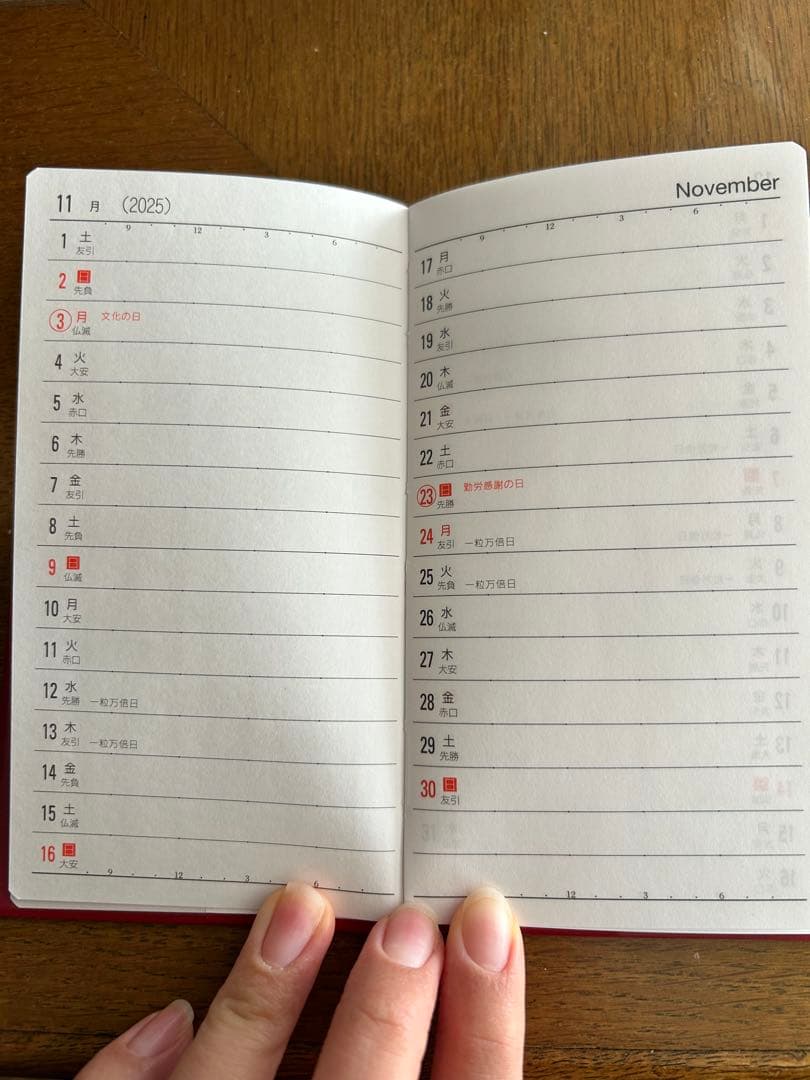 11 月 (2025)
9 12 3 6
1 土
友引
2 日
先負
3 月 文化の日
仏滅
4 火
大安
5 水
赤口
6 木
先勝
7 金
友引
8 土
先負
9 日
仏滅
10 月
大安
11 火
赤口
12 水
先勝 一粒万倍日
13 木
友引 一粒万倍日
14 金
先負
15 土
仏滅
16 日
大安
9 12 3 6
November
9 12 3 6
17 月
赤口
18 火
先勝
19 水
友引
20 木
仏滅
21 金
大安
22 土
赤口
23 日 勤労感謝の日
先勝
24 月
友引 一粒万倍日
25 火
先負 一粒万倍日
26 水
仏滅
27 木
大安
28 金
赤口
29 土
先勝
30 日
友引
12 3 6